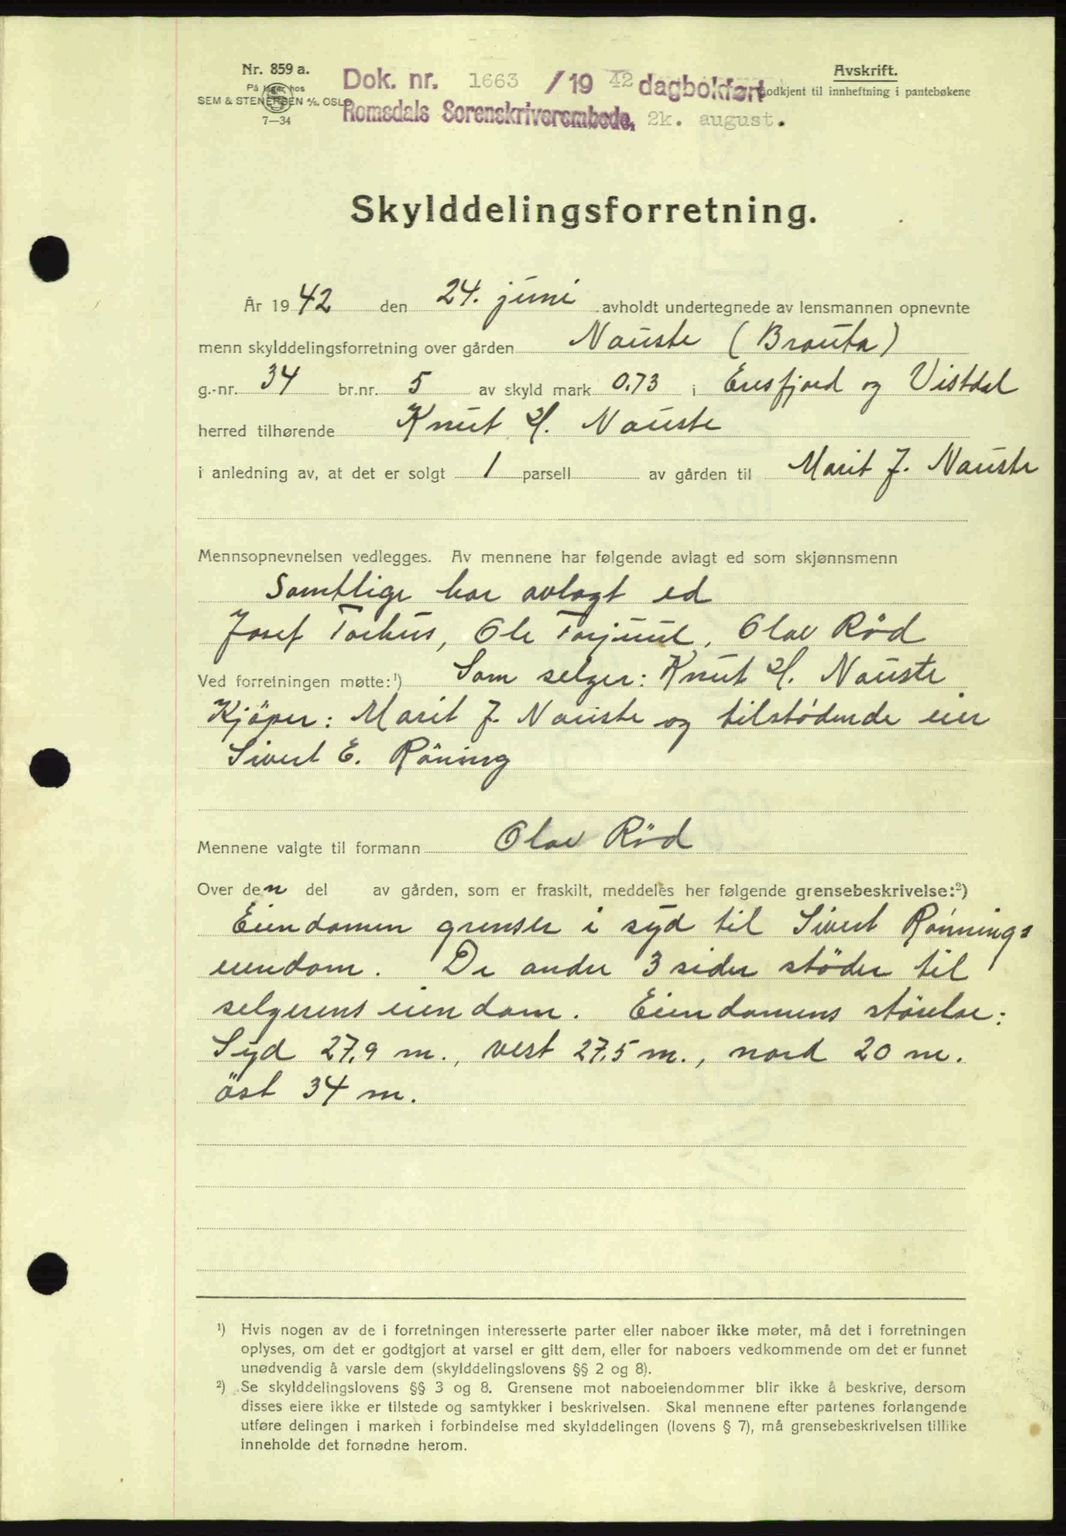 Nr. 859 a.
På lager hos
SEM & STENERSEN A/S, OSLO
7—34
Dok. nr. 1663 /19 42 dagbokført
Romsdals Sorenskriverembede, 2k. august.
Avskrift.
Godkjent til innheftning i pantebøkene
Skylddelingsforretning.
År 1942 den 24. juni avholdt undertegnede av lensmannen opnevnte
menn skylddelingsforretning over gården Nauste (Brauta)
g.-nr. 34 br.nr. 5 av skyld mark 0.73 i Eresfjord og Vistdal
herred tilhørende Knut H. Nauste
i anledning av, at det er solgt 1 parsell av gården til Marit J. Nauste
Mennsopnevnelsen vedlegges. Av mennene har følgende avlagt ed som skjønnsmenn
Samtlige har avlagt ed
Josef Torhus, Ole Torjuul, Olav Rød
Ved forretningen møtte:¹) Som selger: Knut H. Nauste
Kjöper: Marit J. Nauste og tilstödende eier
Sivert E. Röning
Mennene valgte til formann Olav Rød
Over den del av gården, som er fraskilt, meddeles her følgende grensebeskrivelse:²)
Eiendomen grenser i syd til Sivert Rönnings
eiendom. De andre 3 sider stöder til
selgerens eiendom. Eiendomens störelse:
Syd 27,9 m., vest 27,5 m., nord 20 m.
öst 34 m.
¹) Hvis nogen av de i forretningen interesserte parter eller naboer ikke møter, må det i forretningen
oplyses, om det er godtgjort at varsel er gitt dem, eller for naboers vedkommende om det er funnet
unødvendig å varsle dem (skylddelingslovens §§ 2 og 8).
²) Se skylddelingslovens §§ 3 og 8. Grensene mot naboeiendommer blir ikke å beskrive, dersom
disses eiere ikke er tilstede og samtykker i beskrivelsen. Skal mennene efter partenes forlangende
utføre delingen i marken i forbindelse med skylddelingen (lovens § 7), må grensebeskrivelsen tillike
inneholde det fornødne herom.